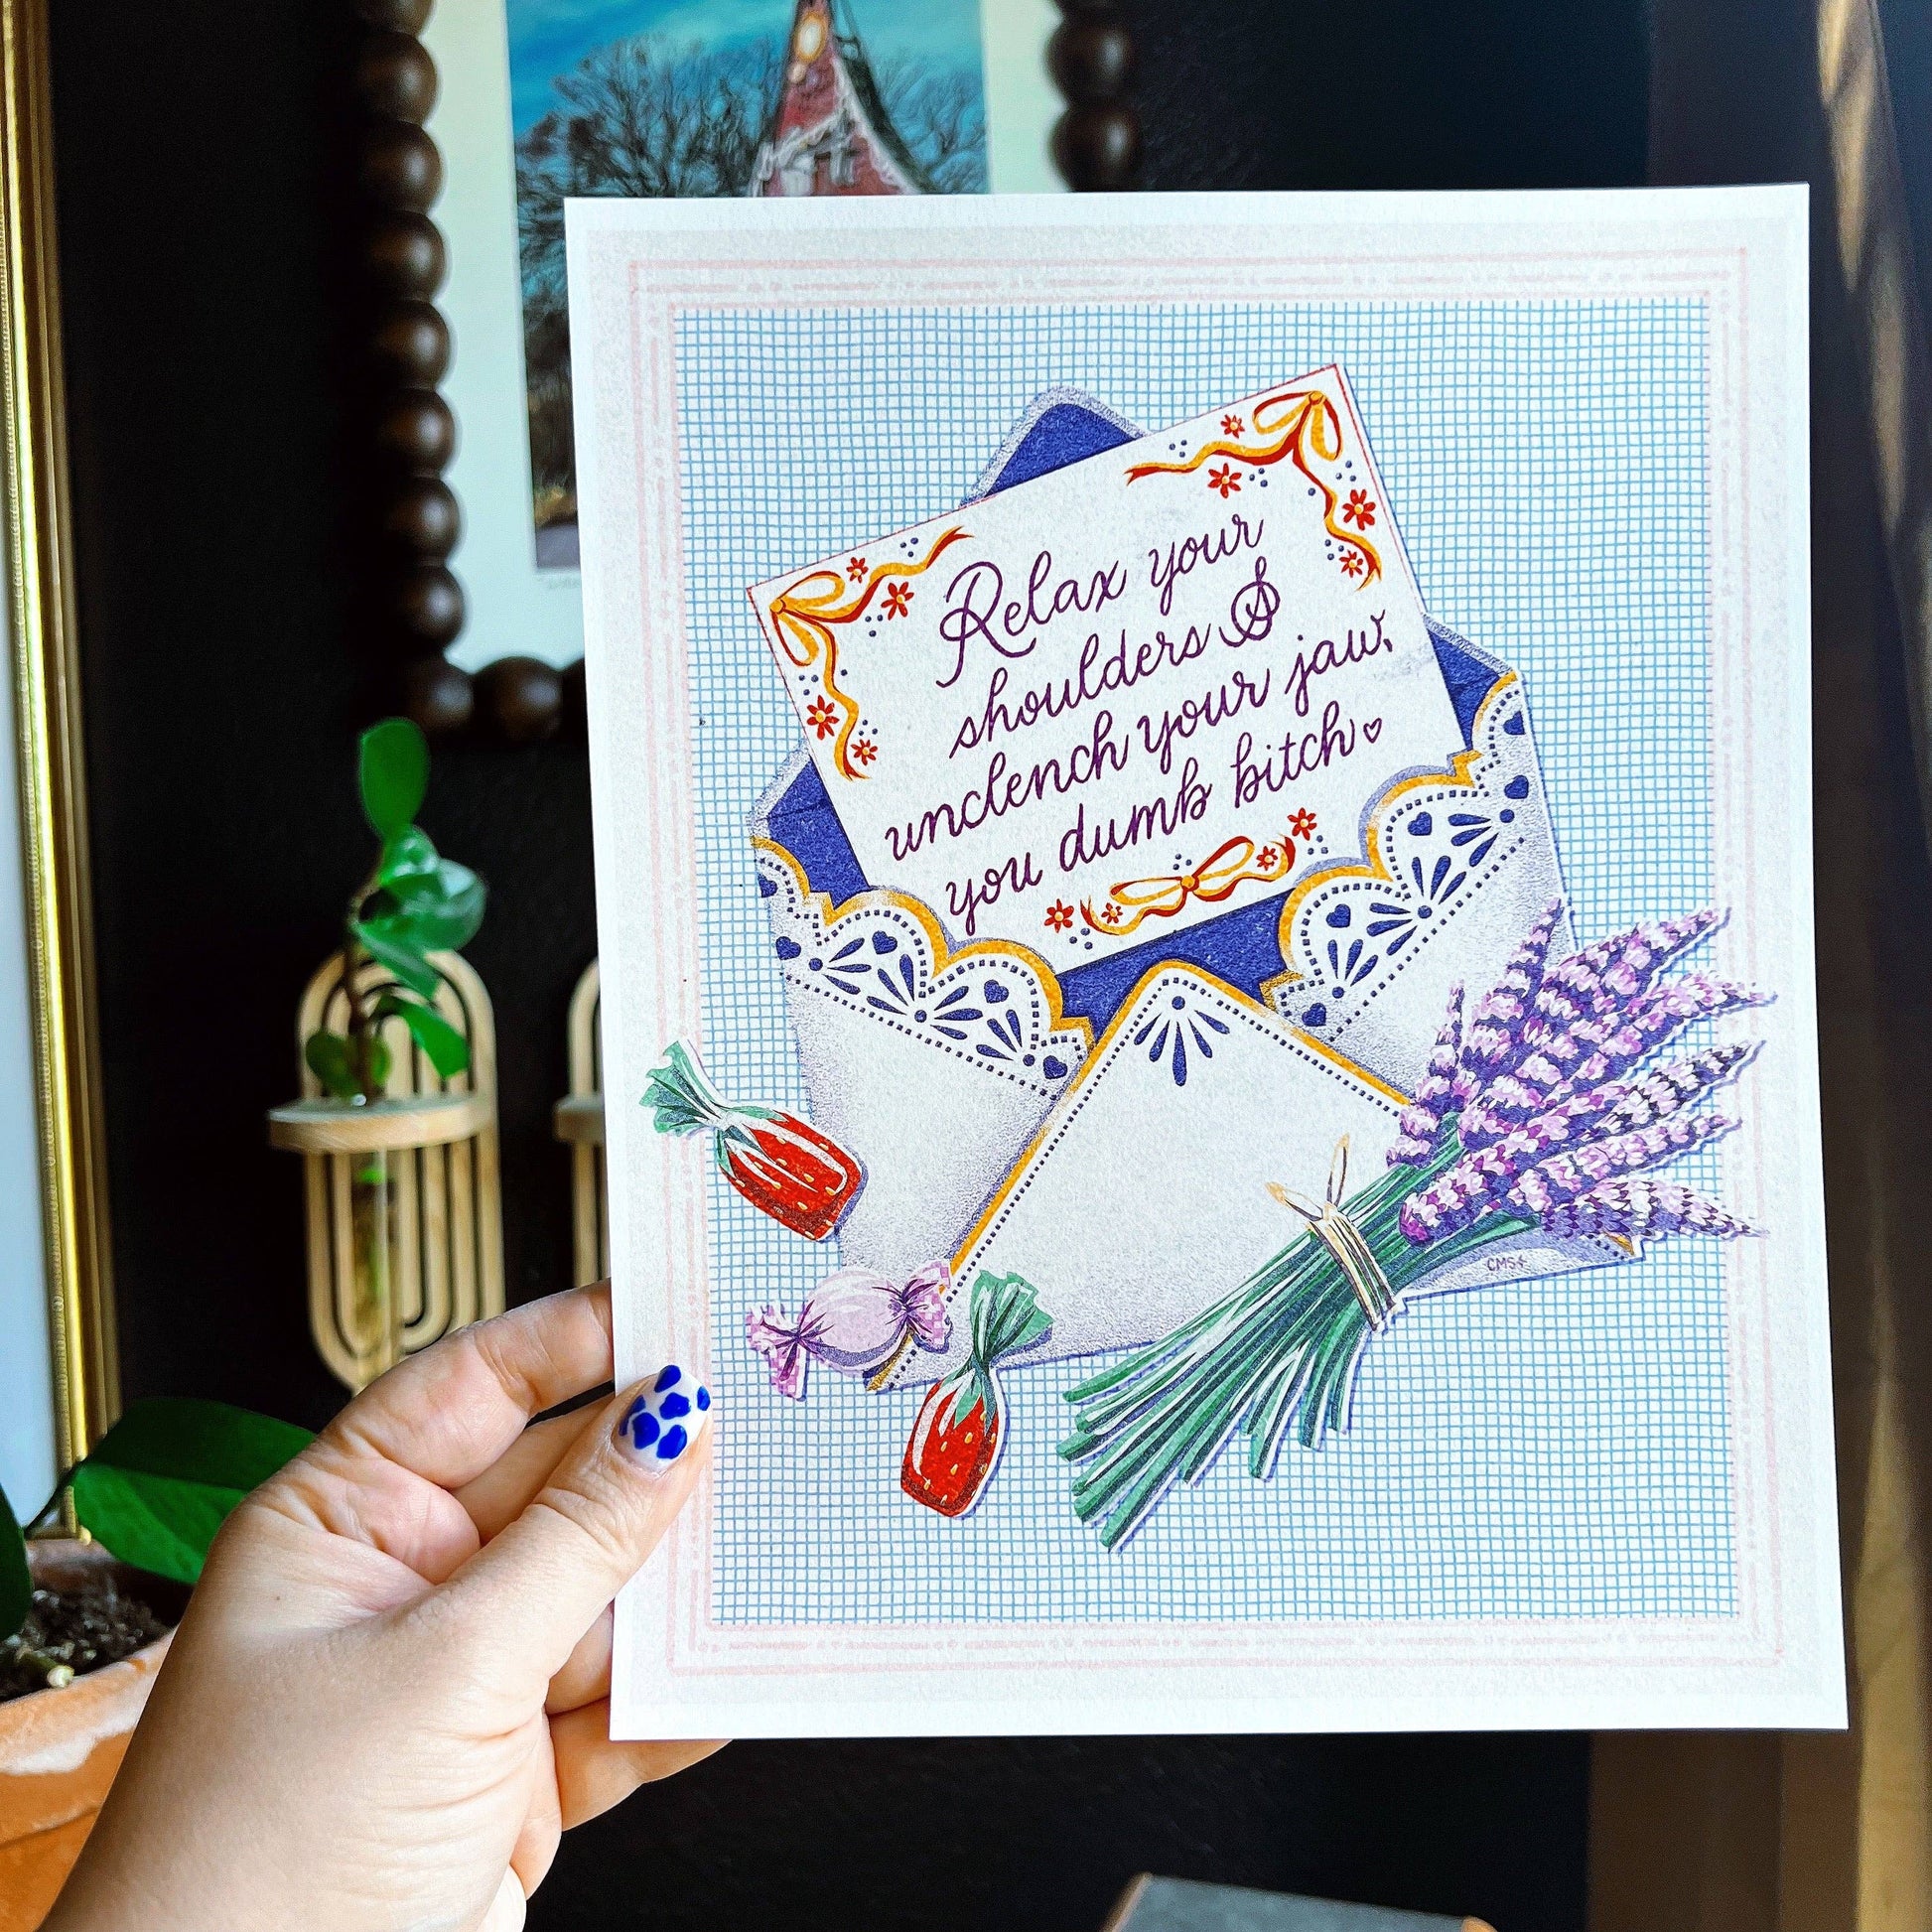 Relax your
shoulders &
unclench your jaw,
you dumb bitch♡
CMS+